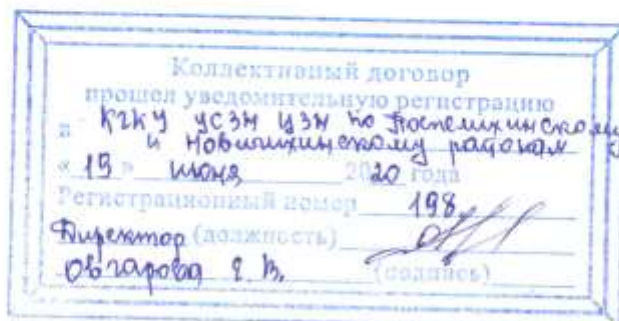 Коллективный договор
прошел уведомительную регистрацию
в КГКУ УСЗН ЦЗН по Поспелихинскому
и Новичихинскому районам
« 15 » июня 2020 года
Регистрационный номер 198
Директор (должность)
Овчарова Е. В. (подпись)